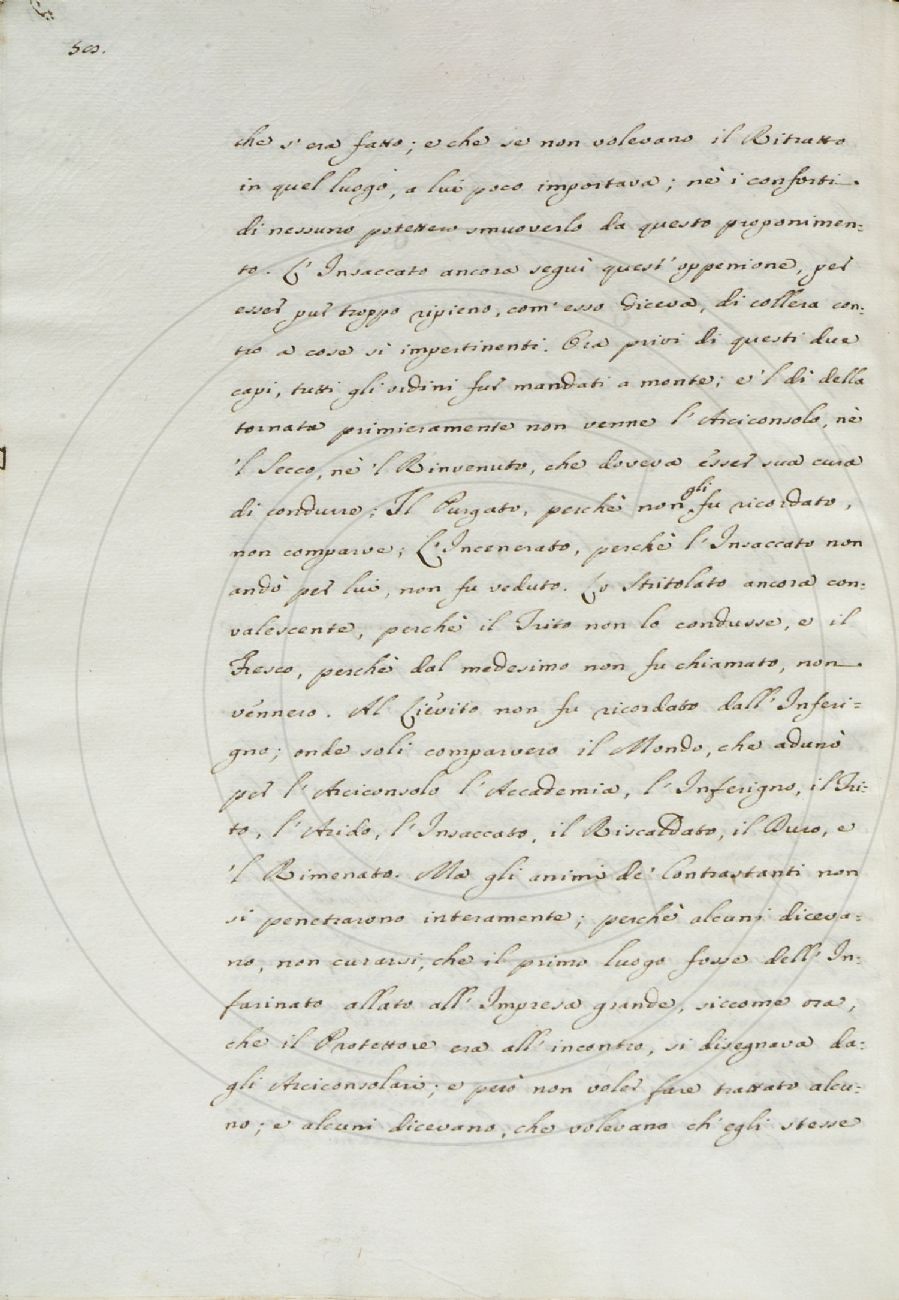 che s'era fatto; e che se non volevano il Ritratto
in quel luogo, a lui poco importava; nè i conforti
di nessuno potettero smuoverlo da questo proponimen=
to. L'Insaccato ancora seguì quest'oppenione, per
esser pur troppo ripieno, com'esso diceva, di collera con=
tro a cose sì impertinenti. Ora privi di questi due
capi, tutti gli ordini fur mandati a monte; e'l dì della
tornata primieramente non venne l'Arciconsolo, nè
'l Secco, nè 'l Rinvenuto, che doveva esser sua cura
di condurre: Il Purgato, perchè non gli fu ricordato,
non comparve; L'Incenerato, perchè l'Insaccato non
andò per lui, non fu veduto. Lo Stritolato ancora con=
valescente, perchè il Trito non lo condusse, e il
Fresco, perchè dal medesimo non fu chiamato, non
vennero. Al Lievito non fu ricordato dall'Inferi=
gno; onde soli comparvero il Mondo, che adunò
per l'Arciconsolo l'Accademia, l'Inferigno, il Tri=
to, l'Arido, l'Insaccato, il Riscaldato, il Duro, e
'l Rimenato. Ma gli animi de' Contrastanti non
si penetrarono interamente; perchè alcuni diceva=
no, non curarsi, che il primo luogo fosse dell'In=
farinato allato all'Impresa grande, siccome ora,
che il Protettore era all'incontro, si disegnava da=
gli Arciconsolari; e però non voler fare trattato alcu=
no; e alcuni dicevano, che volevano ch'egli stesse